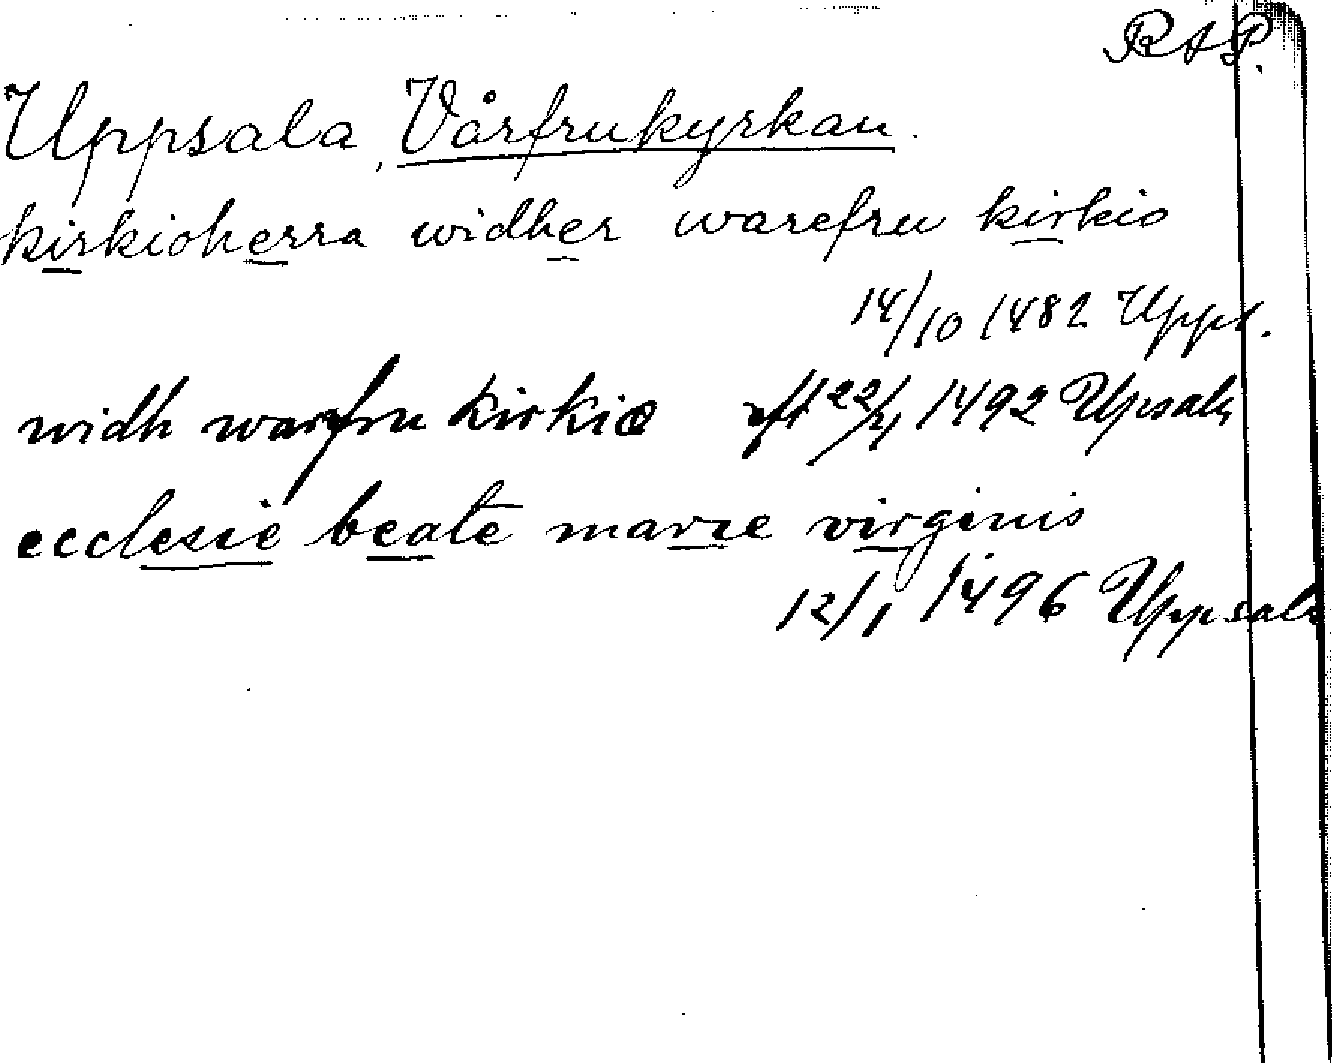 RAP.
Uppsala, Vårfrukyrkan.
kirkioherra widher warefru kirkio
14/10 1482 Uppl.
widh warfru kirkiæ eft 22/4 1492 Upsala
ecclesie beate marie virginis
12/1 1496 Uppsala